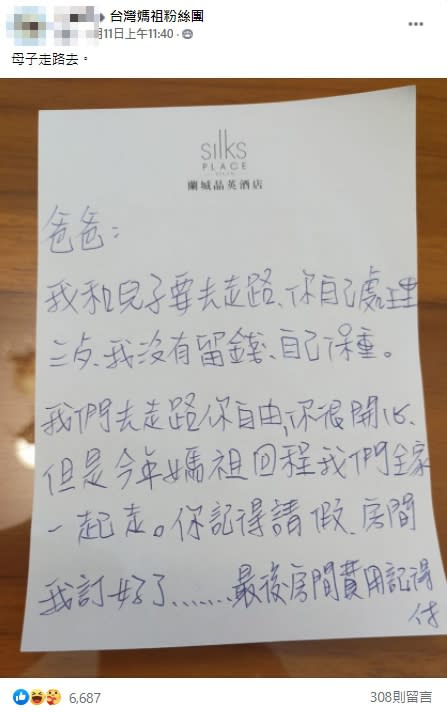 台灣媽祖粉絲團
月11日上午11:40
母子走路去。
silks
PLACE
YILAN
蘭城晶英酒店
爸爸：
我和兒子要去走路、你自己處理
三歺、我沒有留錢、自己保重。
我們去走路你自由，你很開心、
但是今年媽祖回程我們全家
一起走。你記得請假、房間
我訂好了......最後房間費用記得
付
6,687
308則留言